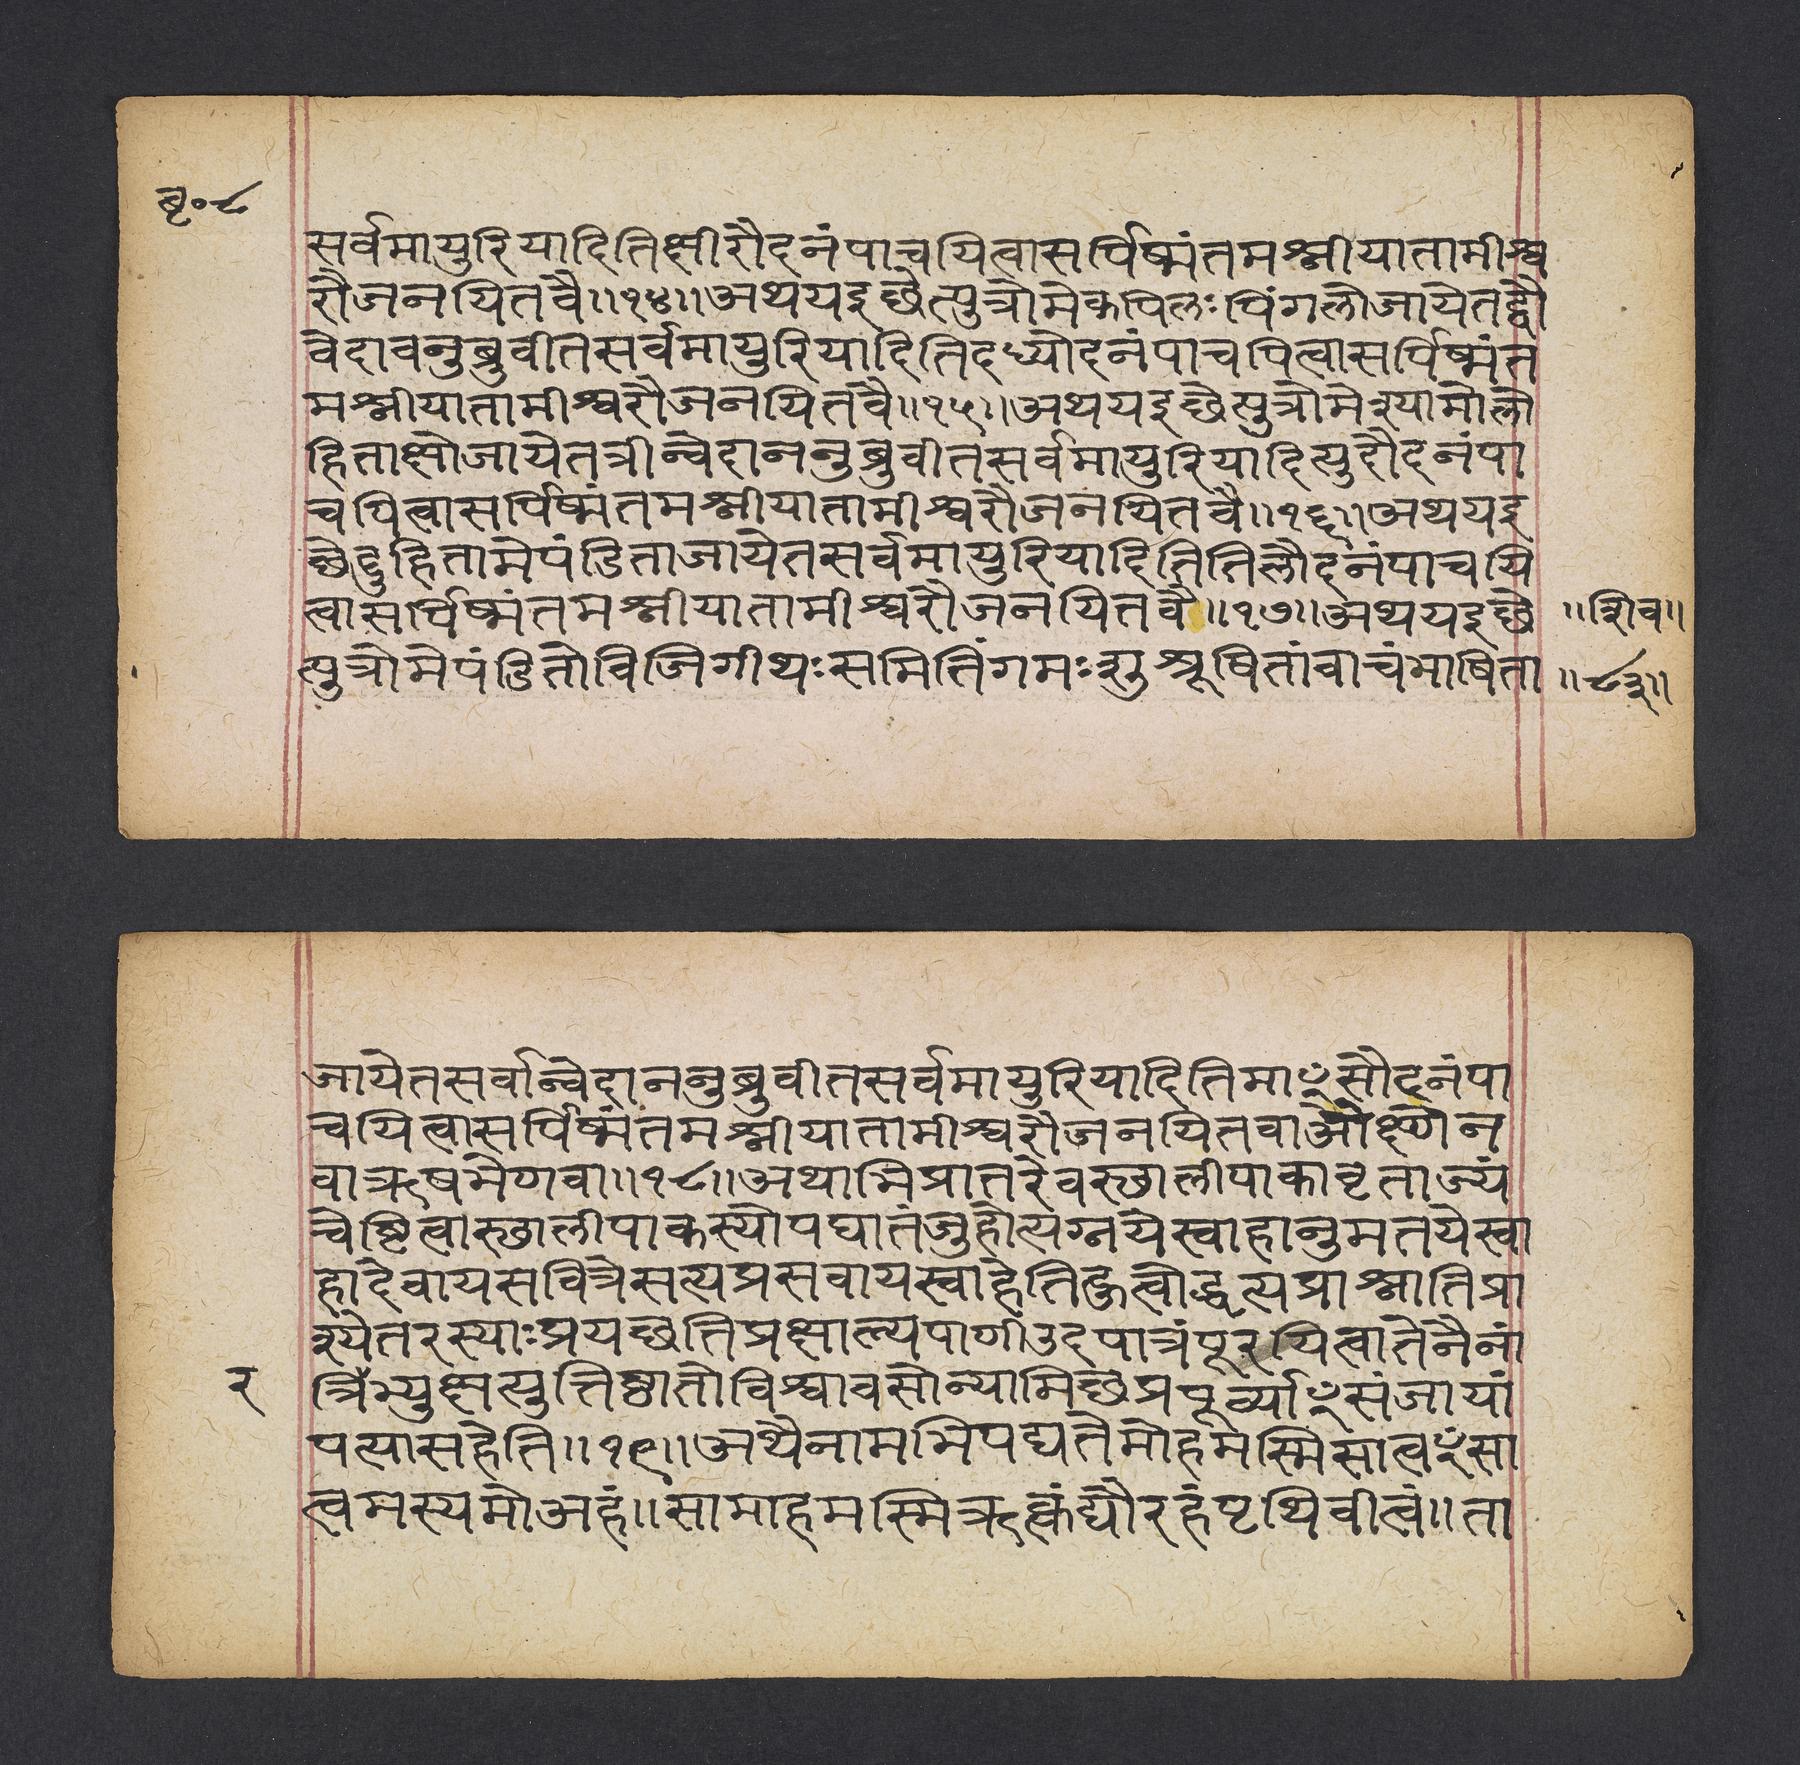 बृ०८
सर्वमायुरियादितिक्षीरौदनंपाचयित्वासर्पिष्मंतमश्नीयातामीश्व
रौजनयितवै॥१४॥अथयइछेत्पुत्रोमेकपिलःपिंगलोजायेतद्वौ
वेदावनुब्रुवीतसर्वमायुरियादितिदध्योदनंपाचयित्वासर्पिष्मंत
मश्नीयातामीश्वरौजनयितवै॥१५॥अथयइछेत्पुत्रोमेश्यामोलो
हिताक्षोजायेतत्रीन्वेदाननुब्रुवीतसर्वमायुरियादित्युदौदनंपा
चयित्वासर्पिष्मंतमश्नीयातामीश्वरौजनयितवै॥१६॥अथयइ
छेद्दुहितामेपंडिताजायेतसर्वमायुरियादितितिलौदनंपाचयि
त्वासर्पिष्मंतमश्नीयातामीश्वरौजनयितवै॥१७॥अथयइछे
॥शिव॥
त्पुत्रोमेपंडितोविजिगीथःसमितिंगमःशुश्रूषितांवाचंभाषिता
॥८३॥
जायेतसर्वान्वेदाननुब्रुवीतसर्वमायुरियादितिमाꣳसौदनंपा
चयित्वासर्पिष्मंतमश्नीयातामीश्वरौजनयितवाऔक्ष्णेन
वाऋषभेणवा॥१८॥अथाभिप्रातरेवस्छालीपाकावृताज्यं
चेष्टित्वास्छालीपाकस्योपघातंजुहोत्यग्नयेस्वाहानुमतयेस्वा
हादेवायसवित्रेसत्यप्रसवायस्वाहेतिहुत्वोद्धृत्यप्राश्नातिप्रा
श्येतरस्याःप्रयछतिप्रक्षाल्यपाणीउदपात्रंपूरयित्वातेनैनां
र
त्रिँभ्युक्षत्युत्तिष्ठातोविश्वावसोन्यामिछप्रपूर्व्याꣳसंजायां
पत्यासहेति॥१९॥अथैनामभिपद्यतेमोहमस्मिसात्वꣳसा
त्वमस्यमोअहं॥सामाहमस्मिऋक्त्वंद्यौरहंपृथिवीत्वं॥ता